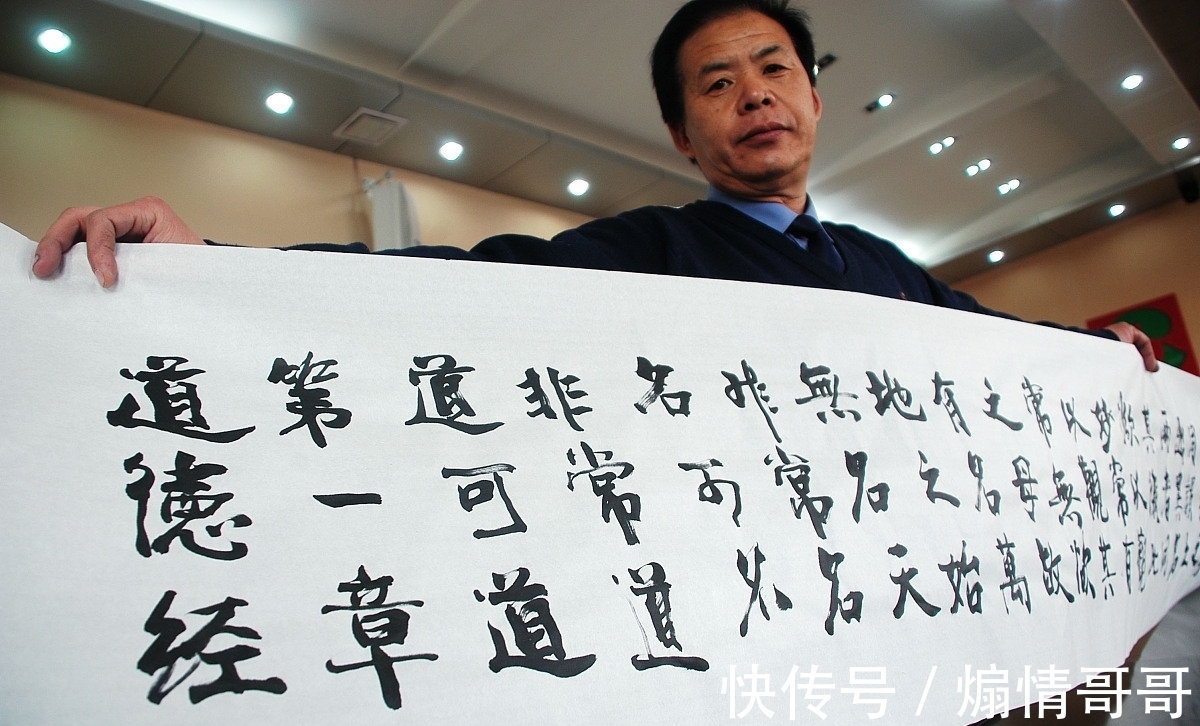 道德经
第一章
道可道
非常道
名可名
非常名
無名天
地之始
有名萬
之母故
常無欲
以觀其
妙常有
欲以觀
快传号 / 煽情哥哥